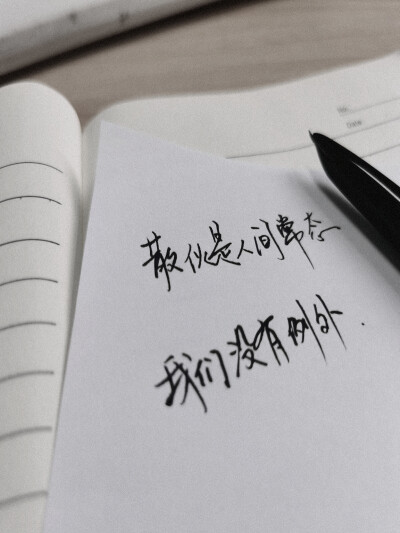 散伙是人间常态
我们没有例外.